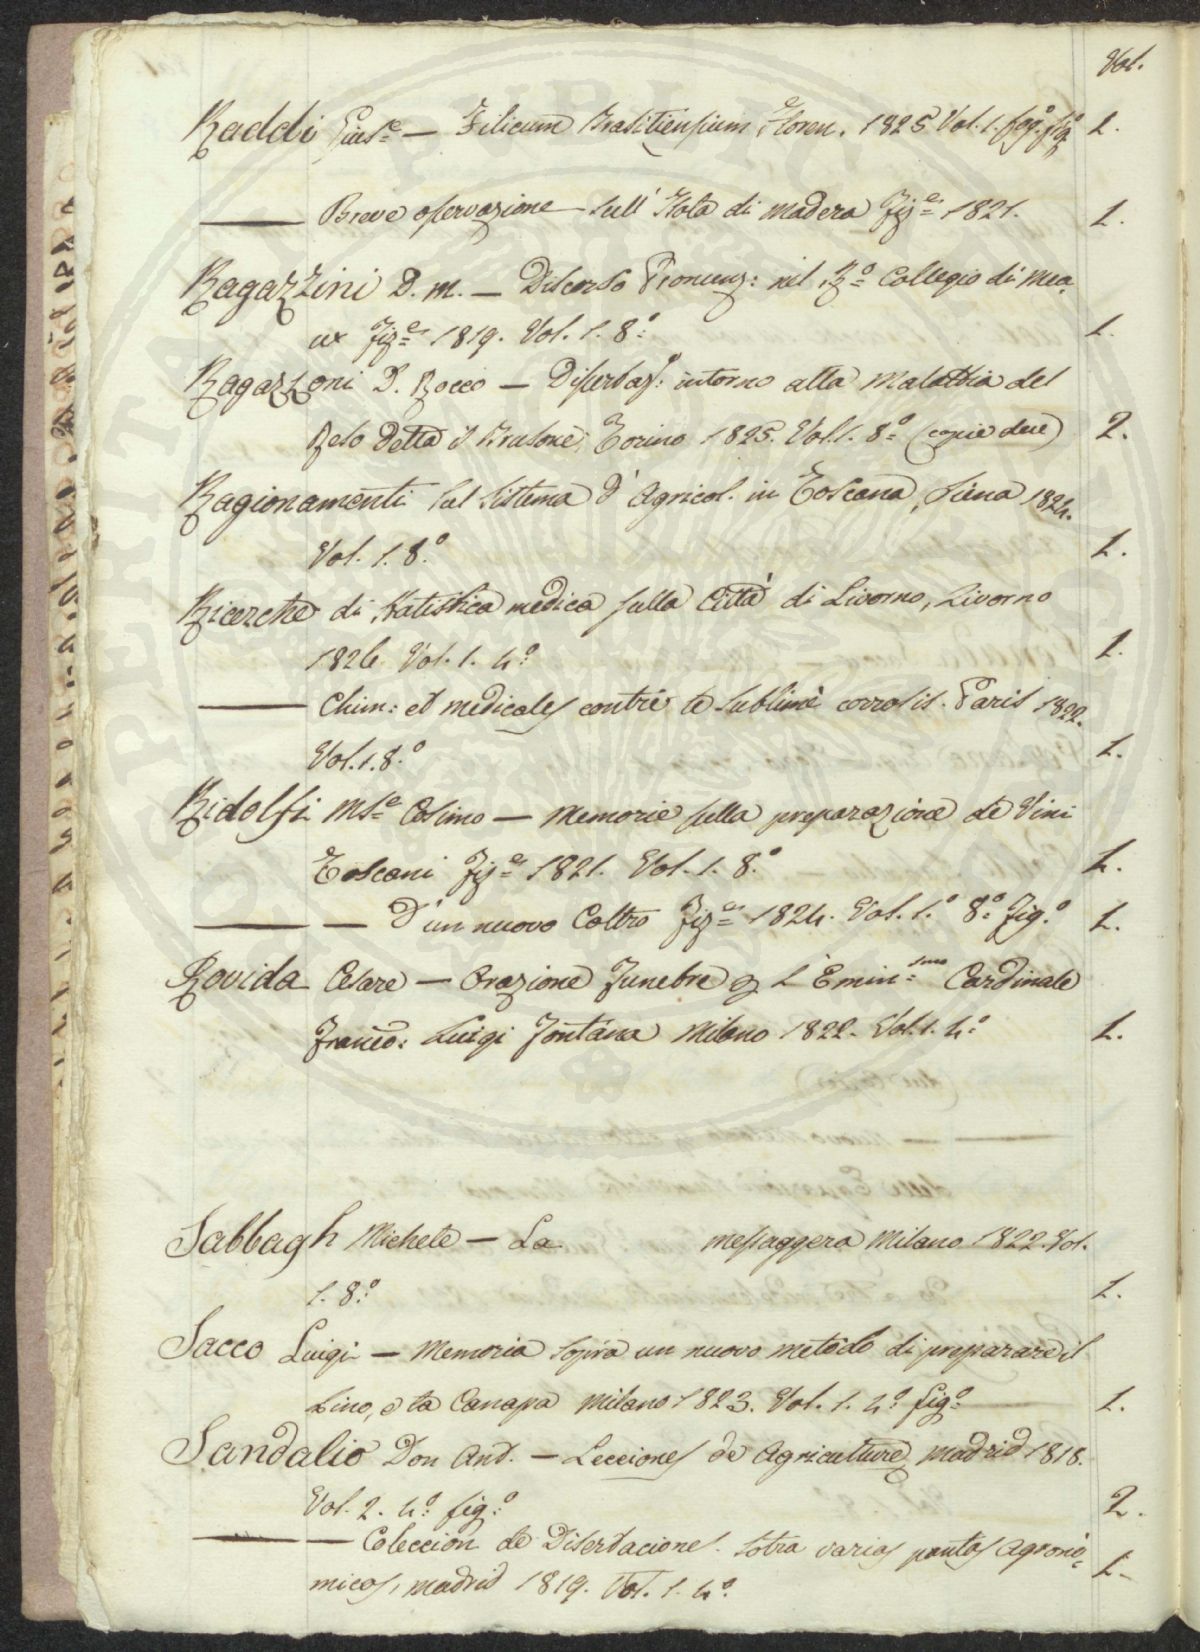 Vol.
Raddi Gius.e — Filicum Brasiliensium, Floren. 1825 Vol. 1. fog.o fig.o 1.
——— Breve osservazione sull' Isola di Madera Fiz.e 1821. 1.
Ragazzini D. M. — Discorso Pronunz: nel R.o Collegio di Mea,
ux Fiz.e 1819. Vol. 1. 8.o 1.
Ragazzoni D. Rocco — Dissertaz: intorno alla Malattia del
Riso Detta il Brusone, Torino 1825. Vol. 1. 8.o (copie due) 2.
Ragionamenti sul Sistema d' Agricol. in Toscana, Siena 1824.
Vol. 1. 8.o 1.
Ricerche di Statistica medica sulla Città di Livorno, Livorno
1826. Vol. 1. 4.o 1.
——— Chim: et medicales contre le Sublimè corrosis. Paris 1822.
Vol. 1. 8.o 1.
Ridolfi Ms.e Cosimo — Memorie sulla preparazione de Vini
Toscani Fiz.e 1821. Vol. 1. 8.o 1.
——— — D'un nuovo Coltro Fiz.e 1824. Vol. 1.o 8.o Fig.o 1.
Rovida Cesare — Orazione Funebre L'Emin.smo Cardinale
Franco: Luigi Fontana Milano 1822. Vol. 1. 4.o 1.
Sabbagh Michele — La messaggera Milano 1822. Vol.
1. 8.o 1.
Sacco Luigi — Memoria sopra un nuovo metodo di preparare il
Lino, e la Canapa Milano 1823. Vol. 1. 4.o fig.o 1.
Sandalio Don Ant. — Lecciones de Agriculture, Madrid 1818.
Vol. 2. 4.o fig.o 2.
——— — Coleccion de Disertaciones. sobra varias puntos Agronò,
micos, Madrid 1819. Vol. 1. 4.o 1.